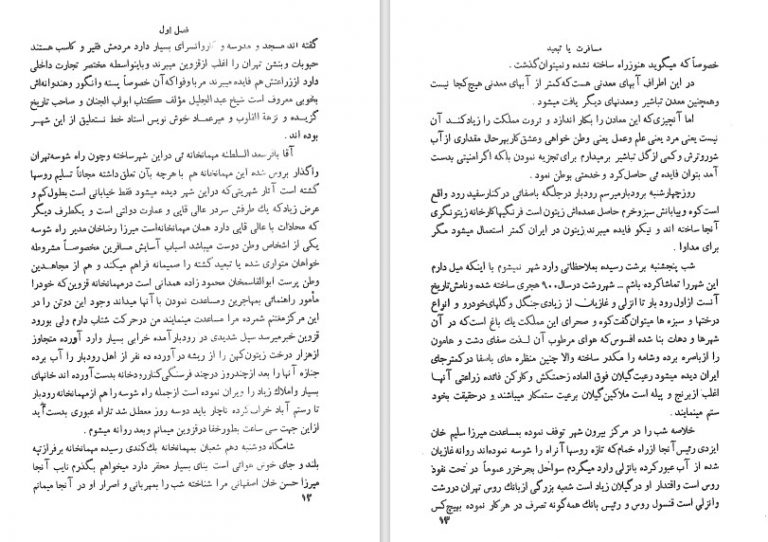 فصل اول
گفته اند مسجد و مدرسه و کاروانسرای بسیار دارد مردمش فقیر و کاسب هستند
حبوبات وبنشن تهران را اغلب ازقزوین میبرند وباطراف هم مختصر تجارت داخلی
دارد اززراعتش هم فایده میبرند مربا وفواکه آن خصوصاً پسته وانگور وهندوانه‌اش
بخوبی معروف است شیخ عبدالجلیل مؤلف کتاب ابواب الجنان و صاحب تاریخ
گزیده و نزهة القلوب و میرعماد خوش نویس استاد خط نستعلیق از این شهر
بوده اند .
آقا باقرسعد السلطنه مهمانخانه ئی دراین شهرساخته وچون راه شوسه تهران
واگذار بروس شده این مهمانخانه هم با هرچه بآن تعلق داشته مجاناً تسلیم روسها
گشته است آثار شهریتی که دراین شهر دیده میشود فقط خیابانی است بطول کم و
عرض زیاد که یك طرفش سردر عالی قاپی و عمارت دولتی است و یکطرف دیگر
که محاذات با عالی قاپی دارد همان مهمانخانه‌است میرزا رضاخان مدیر راه شوسه
یکی از اشخاص وطن دوست میباشد اسباب آسایش مسافرین مخصوصاً مشروطه
خواهان متواری شده یا تبعید گشته را صمیمانه فراهم میکند و هم از مجاهدین
وطن پرست ابوالقاسمخان محمود زاده همدانی است درمهمانخانه قزوین که خودرا
مأمور راهنمائی بمهاجرین ومساعدت نمودن با آنها میداند وجود این دوتن را در
این مرکز مغتنم شمرده مرا مساعدت مینمایند من درحرکت شتاب دارم ولی بورود
قزوین خبر میرسد سیل شدیدی در رودبار آمده خرابی بسیار وارد آورده متجاوز
ازهزار درخت زیتون کهن را از ریشه در آورده ده نفر از اهل رودبار را آب برده
جنازه آنها را بعد ازچندروز درچند فرسنگی کنار رودخانه بدست آورده اند خانهای
بسیار واملاك زیاد را ویران نموده است ازجمله راه شوسه را هم ازمهمانخانه رودبار
تا رستم آباد خراب کرده ناچار باید دوسه روز معطل شد تاراه عبوری بدست آید
از این جهت سی ساعت بطورخفا درقزوین میمانم وبعد روانه میشوم .
شامگاه دوشنبه دهم شعبان بمهمانخانه یك‌کندی رسیده مهمانخانه برفراز تپه
بلند و جای خوش هوائی است بنای بسیار محقر دارد میخواهم بگذوم نایب آنجا
میرزا حسن خان اصفهانی مرا شناخته شب را بمهربانی و اصرار او در آنجا میمانم
۱۲
مسافرت یا تبعید
خصوصاً که میگوید هنوزراه ساخته نشده و نمیتوان گذشت .
در این اطراف آبهای معدنی هست که کمتر از آبهای معدنی هیچ کجا نیست
وهمچنین معدن تباشیر ومعدنهای دیگر یافت میشود .
اما آنچیزی که این معادن را بکار اندازد و ثروت مملکت را زیاد کند آن
نیست یعنی مرد یعنی علم وعمل یعنی وطن خواهی وعشق کار بهرحال مقداری از آب
شوروترش وکمی ازگل تباشیر برمیدارم برای تجزیه نمودن بالکه اگر امنیتی بدست
آمد بتوان فایده ئی حاصل کرد و خدمتی بوطن نمود .
روزچهارشنبه برودبار میرسم رودبار درجلگه باصفائی در کنار سفید رود واقع
است کوه وبیابانش سبزوخرم حاصل عمده‌اش زیتون است فرنگیها کارخانه زیتونگری
آنجا ساخته اند و نیکو فایده میبرند زیتون در ایران کمتر استعمال میشود مگر
برای مداوا .
شب پنجشنبه برشت رسیده بملاحظاتی وارد شهر نمیشوم با اینکه میل دارم
این شهررا تماشا کرده باشم – شهررشت درسال ۹۰۰ هجری ساخته شده ونامش تاریخ
آنست ازاول رود بار تا انزلی و غازیان از زیادی جنگل و گلهای خودرو و انواع
درختها و سبزه ها میتوان گفت کوه و صحرای این مملکت یك باغ است که در آن
شهرها و دهات بنا شده افسوس که هوای مرطوب آن لذت صفای دشت و هامون
را از باصره برده وشامه را مکدر ساخته والا چنین منظره های باصفا در کمتر جای
ایران دیده میشود رعیت گیلان فوق العاده زحمتکش و کارکن فائده زراعتی آنها
اغلب ازبرنج و پیله است ملاکین گیلان برعیت ستمکار میباشند و درحقیقت بخود
ستم مینمایند .
خلاصه شب را در مرکز بیرون شهر توقف نموده بمساعدت میرزا سلیم خان
ایزدی رئیس آنجا ازراه خمام که تازه روسها آنراه را شوسه نموده‌اند روانه غازیان
شده از آب عبور کرده بانزلی وارد میگردم سواحل بحرخزر عموماً در تحت نفوذ
روس است واقتدار او درگیلان زیاد است شعبه بزرگی ازبانك روس تهران دررشت
وانزلی است قنسول روس و رئیس بانك همه‌گونه تصرف در هر کار نموده بهیچ‌کس
۱۳